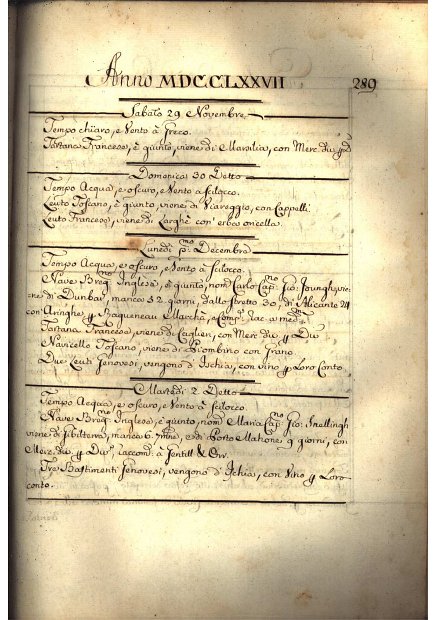 Anno MDCCLXXVII
289
Sabato 29 Novembre
Tempo chiaro, e Vento à Greco.
Tartana Francese, è giunto, viene di Marsilia, con Merc. div
Domenica 30 Detto
Tempo Acqua, e oscuro, e Vento à scilocco.
Leuto Toscano, è giunto, viene di Viareggio, con Cappelli.
Leuto Francese, viene di con erba oricella.
Lunedi pmo Decembre
Tempo Acqua, e oscuro, e Vento à scilocco.
Nave Inglese, è giunto, nomo Carlo Capno Gio: Joungh, vie:
ne di Dunbar, manca 52. giorni, dallo stretto 30, di Alicante 24
con Aringhe Ragueneau Marchà, e Compi
Tartana Francese, viene di Caglieri, con Merc. div Div
Navicello Toscano, viene di Piombino con Grano
Due Leuti Genovesi, vengono d'Ischia, con vino Loro Conto
Martedi 2. Detto
Tempo Acqua, e oscuro, e Vento à scilocco.
Nave Inglese, è giunto, nomo Maria Capno Gio: Snellingh
viene di Gibilterra, manca 6. e di Porto Mahone 9 giorni, con
Merc. div Divi, raccomo à Gentill & Orr.
Tre Bastimenti Genovesi, vengono d'Ischia, con Vino Loro
conto.